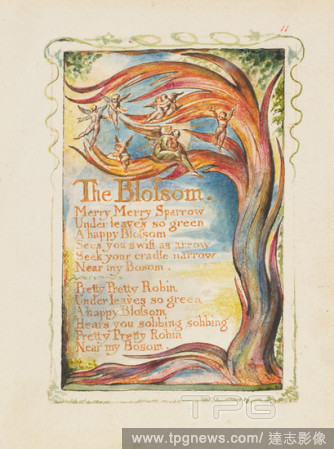 11
The Bloſsom.
Merry Merry Sparrow
Under leaves so green
A happy Bloſsom
Sees you swift as arrow
Seek your cradle narrow
Near my Bosom.
Pretty Pretty Robin
Under leaves so green
A happy Bloſsom
Hears you sobbing sobbing
Pretty Pretty Robin
Near my Bosom
TPG
www.tpgnews.com/ 達志影像